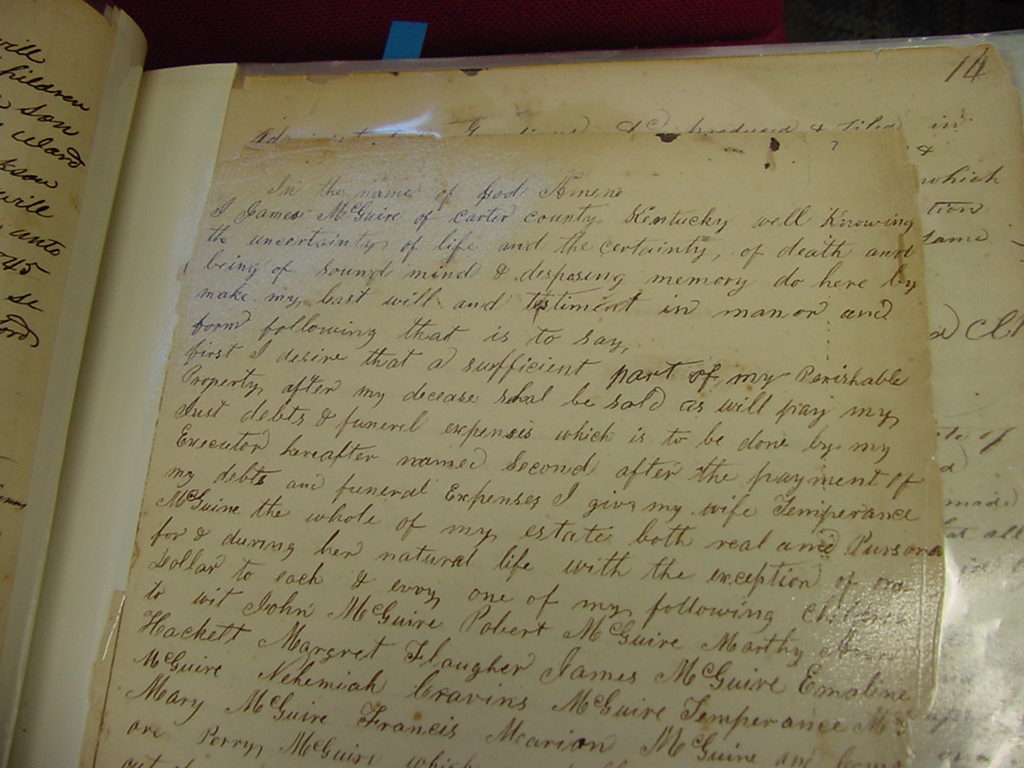 14
in
&
In the name of God Amene
which
I James McGuire of carter county Kentucky well Knowing
tion
the uncertainty of life and the certainty, of death and
same
being of sound mind & desposing memory do here by
make my last will and testiment in manor and
form following that is to say,
first I desire that a sufficient part of my Perishable
Property after my decease shal be sold as will pay my
Just debts & funerel expensis which is to be done by my
Executor hereafter named Second after the payment of
my debts and funeral Expenses I give my wife Temperance
McGuire the whole of my estate both real and Pursona
for & during her natural life with the exception of one
Dollar to each & every one of my following Children
to wit John McGuire Robert McGuire Marthy Ann
Hackett Margret Flaugher James McGuire Emaline
McGuire Nehemiah Cravins McGuire Temperance Mc
Mary McGuire Francis Marion McGuire and
ore Perry McGuire which
will
children
son
Ward
will
unto
45
se